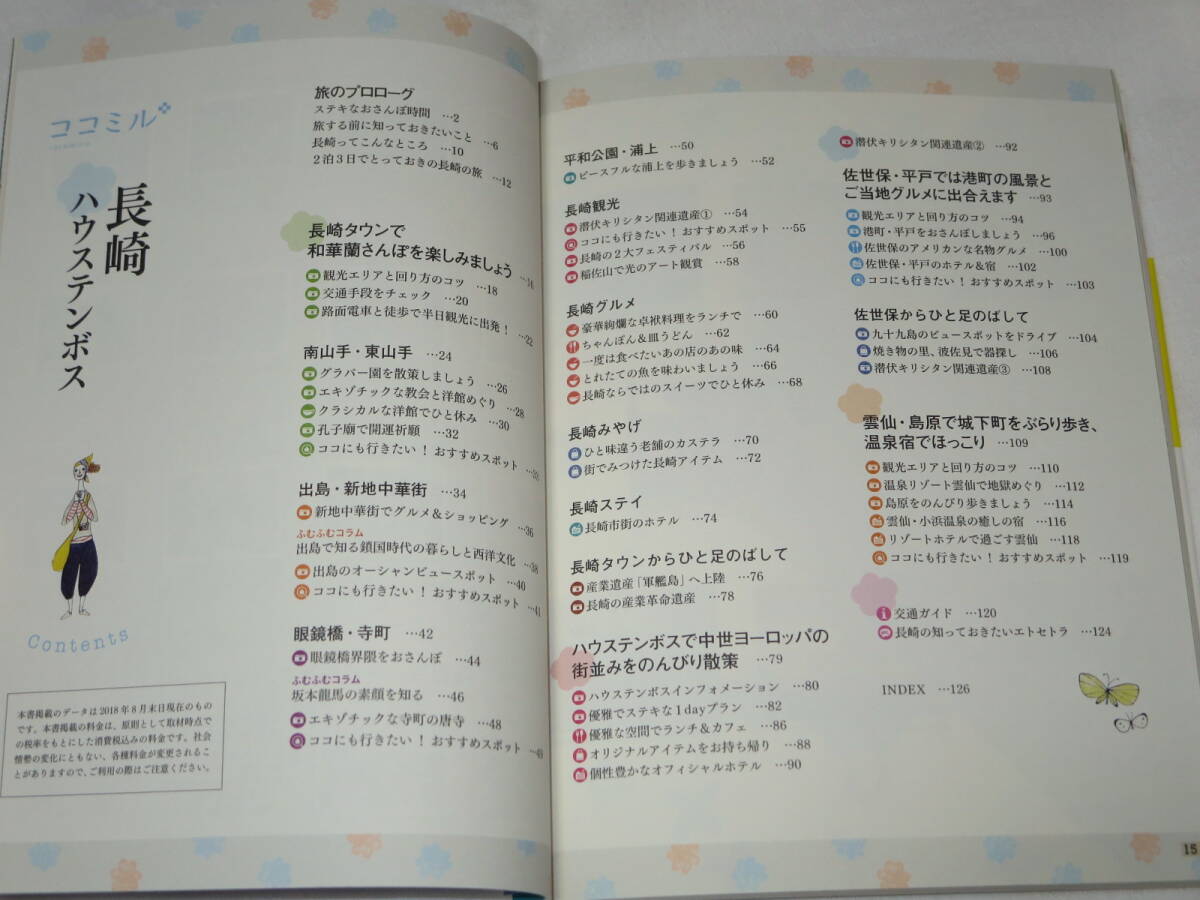 ココミル
長崎
ハウステンボス
Contents
本書掲載のデータは2018年8月末日現在のもの
です。本書掲載の料金は、原則として取材時点で
の税率をもとにした消費税込みの料金です。社会
情勢の変化にともない、各種料金が変更されるこ
とがありますので、ご利用の際はご注意ください。
旅のプロローグ
ステキなおさんぽ時間 …2
旅する前に知っておきたいこと …6
長崎ってこんなところ …10
2泊3日でとっておきの長崎の旅 …12
長崎タウンで
和華蘭さんぽを楽しみましょう …16
観光エリアと回り方のコツ …18
交通手段をチェック …20
路面電車と徒歩で半日観光に出発! …22
南山手・東山手 …24
グラバー園を散策しましょう …26
エキゾチックな教会と洋館めぐり …28
クラシカルな洋館でひと休み …30
孔子廟で開運祈願 …32
ココにも行きたい! おすすめスポット …33
出島・新地中華街 …34
新地中華街でグルメ&ショッピング …36
ふむふむコラム
出島で知る鎖国時代の暮らしと西洋文化 …38
出島のオーシャンビュースポット …40
ココにも行きたい! おすすめスポット …41
眼鏡橋・寺町 …42
眼鏡橋界隈をおさんぽ …44
ふむふむコラム
坂本龍馬の素顔を知る …46
エキゾチックな寺町の唐寺 …48
ココにも行きたい! おすすめスポット …49
平和公園・浦上 …50
ピースフルな浦上を歩きましょう …52
長崎観光
潜伏キリシタン関連遺産① …54
ココにも行きたい! おすすめスポット …55
長崎の2大フェスティバル …56
稲佐山で光のアート観賞 …58
長崎グルメ
豪華絢爛な卓袱料理をランチで …60
ちゃんぽん&皿うどん …62
一度は食べたいあの店のあの味 …64
とれたての魚を味わいましょう …66
長崎ならではのスイーツでひと休み …68
長崎みやげ
ひと味違う老舗のカステラ …70
街でみつけた長崎アイテム …72
長崎ステイ
長崎市街のホテル …74
長崎タウンからひと足のばして
産業遺産「軍艦島」へ上陸 …76
長崎の産業革命遺産 …78
ハウステンボスで中世ヨーロッパの
街並みをのんびり散策 …79
ハウステンボスインフォメーション …80
優雅でステキな1dayプラン …82
優雅な空間でランチ&カフェ …86
オリジナルアイテムをお持ち帰り …88
個性豊かなオフィシャルホテル …90
潜伏キリシタン関連遺産② …92
佐世保・平戸では港町の風景と
ご当地グルメに出合えます …93
観光エリアと回り方のコツ …94
港町・平戸をおさんぽしましょう …96
佐世保のアメリカンな名物グルメ …100
佐世保・平戸のホテル&宿 …102
ココにも行きたい! おすすめスポット …103
佐世保からひと足のばして
九十九島のビュースポットをドライブ …104
焼き物の里、波佐見で器探し …106
潜伏キリシタン関連遺産③ …108
雲仙・島原で城下町をぶらり歩き、
温泉宿でほっこり …109
観光エリアと回り方のコツ …110
温泉リゾート雲仙で地獄めぐり …112
島原をのんびり歩きましょう …114
雲仙・小浜温泉の癒しの宿 …116
リゾートホテルで過ごす雲仙 …118
ココにも行きたい! おすすめスポット …119
交通ガイド …120
長崎の知っておきたいエトセトラ …124
INDEX …126
15